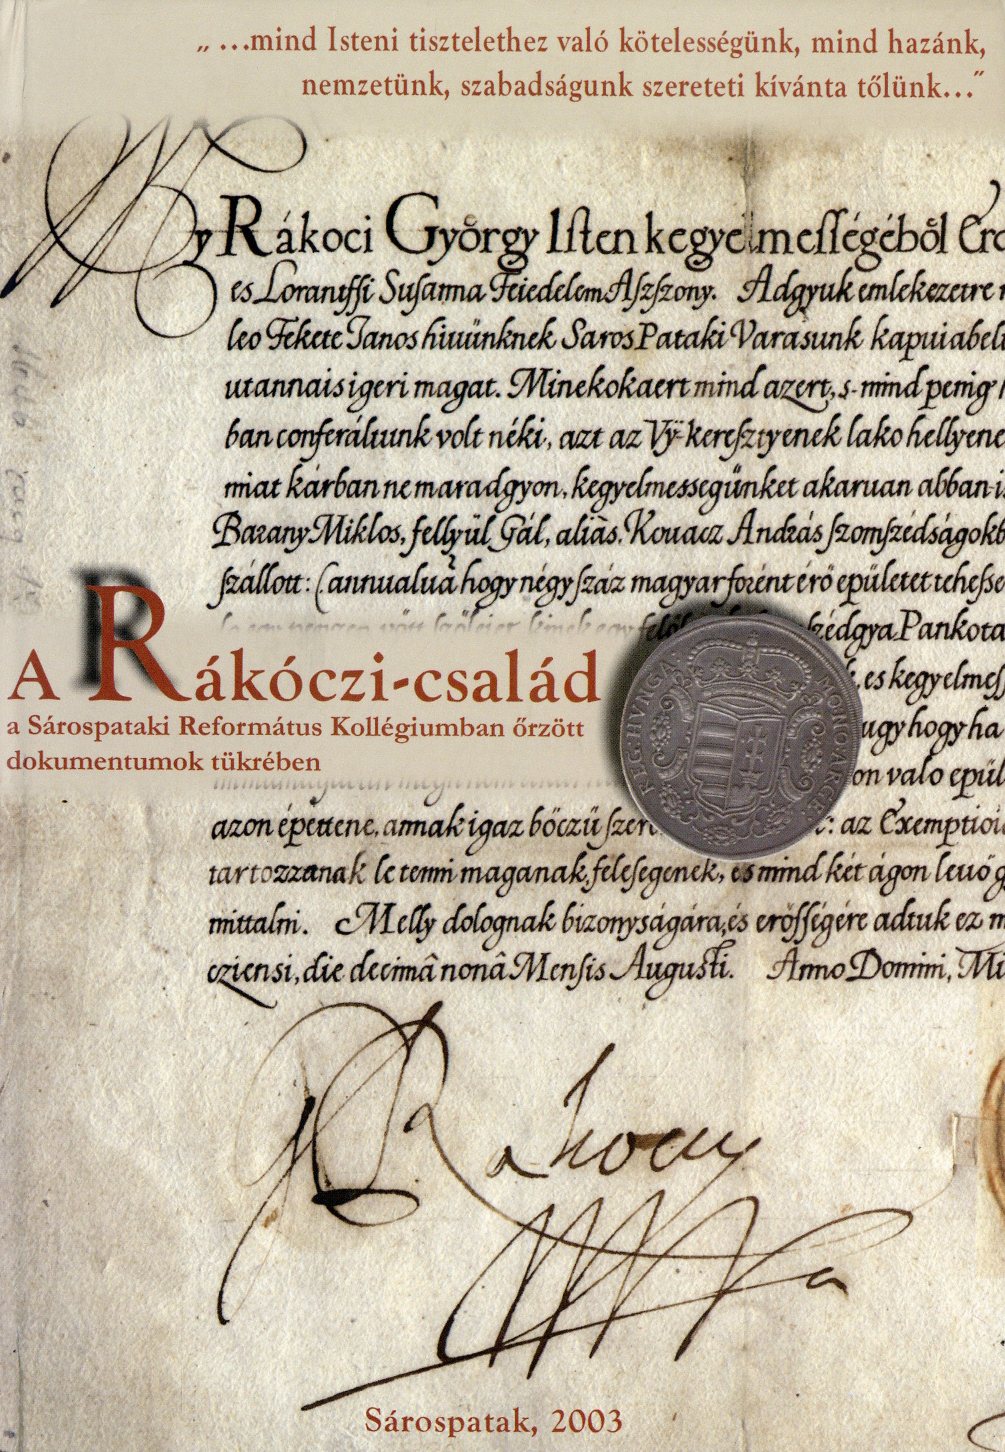 „ ...mind Isteni tisztelethez való kötelességünk, mind hazánk,
nemzetünk, szabadságunk szereteti kívánta tőlünk...”
Rákoci György Isten kegyelmességéből Erd
es Lorantffi Susanna Feiedelem Aszszony. Adgyuk emlekezetre
leo Fekete Janos hiuünknek Saros Pataki Varasunk kapuia
utannais igeri magat. Minekokaert mind azert, s- mind penig
ban conferáltunk volt néki, azt az Vÿ-keresztyenek lako hellyene
miat kárban ne maradgyon, kegyelmessegünket akaruan abban
Barany Miklos, fellyül Gál, aliàs, Kouacz András szomszédságokb
szállott: (annualuā hogy négy száz magyar forént érő epületet tehesse
zédgya Pankota
es kegyelmess
ugy hogy ha
on valo epül
azon épettene, annak igaz böczü szer : az Exemptioi
tartozzanak le tenni maganak, felesegenek, es mind két ágon leuö
mittalni. Melly dolognak bizonyságára, és erősségére adtuk ez
eziensi, die decimâ nonâ Mensis Augusti. Anno Domini, Mi
A Rákóczi-család
a Sárospataki Református Kollégiumban őrzött
dokumentumok tükrében
REG·HUNGA
NONO·ARGE
Rakoczy
Sárospatak, 2003